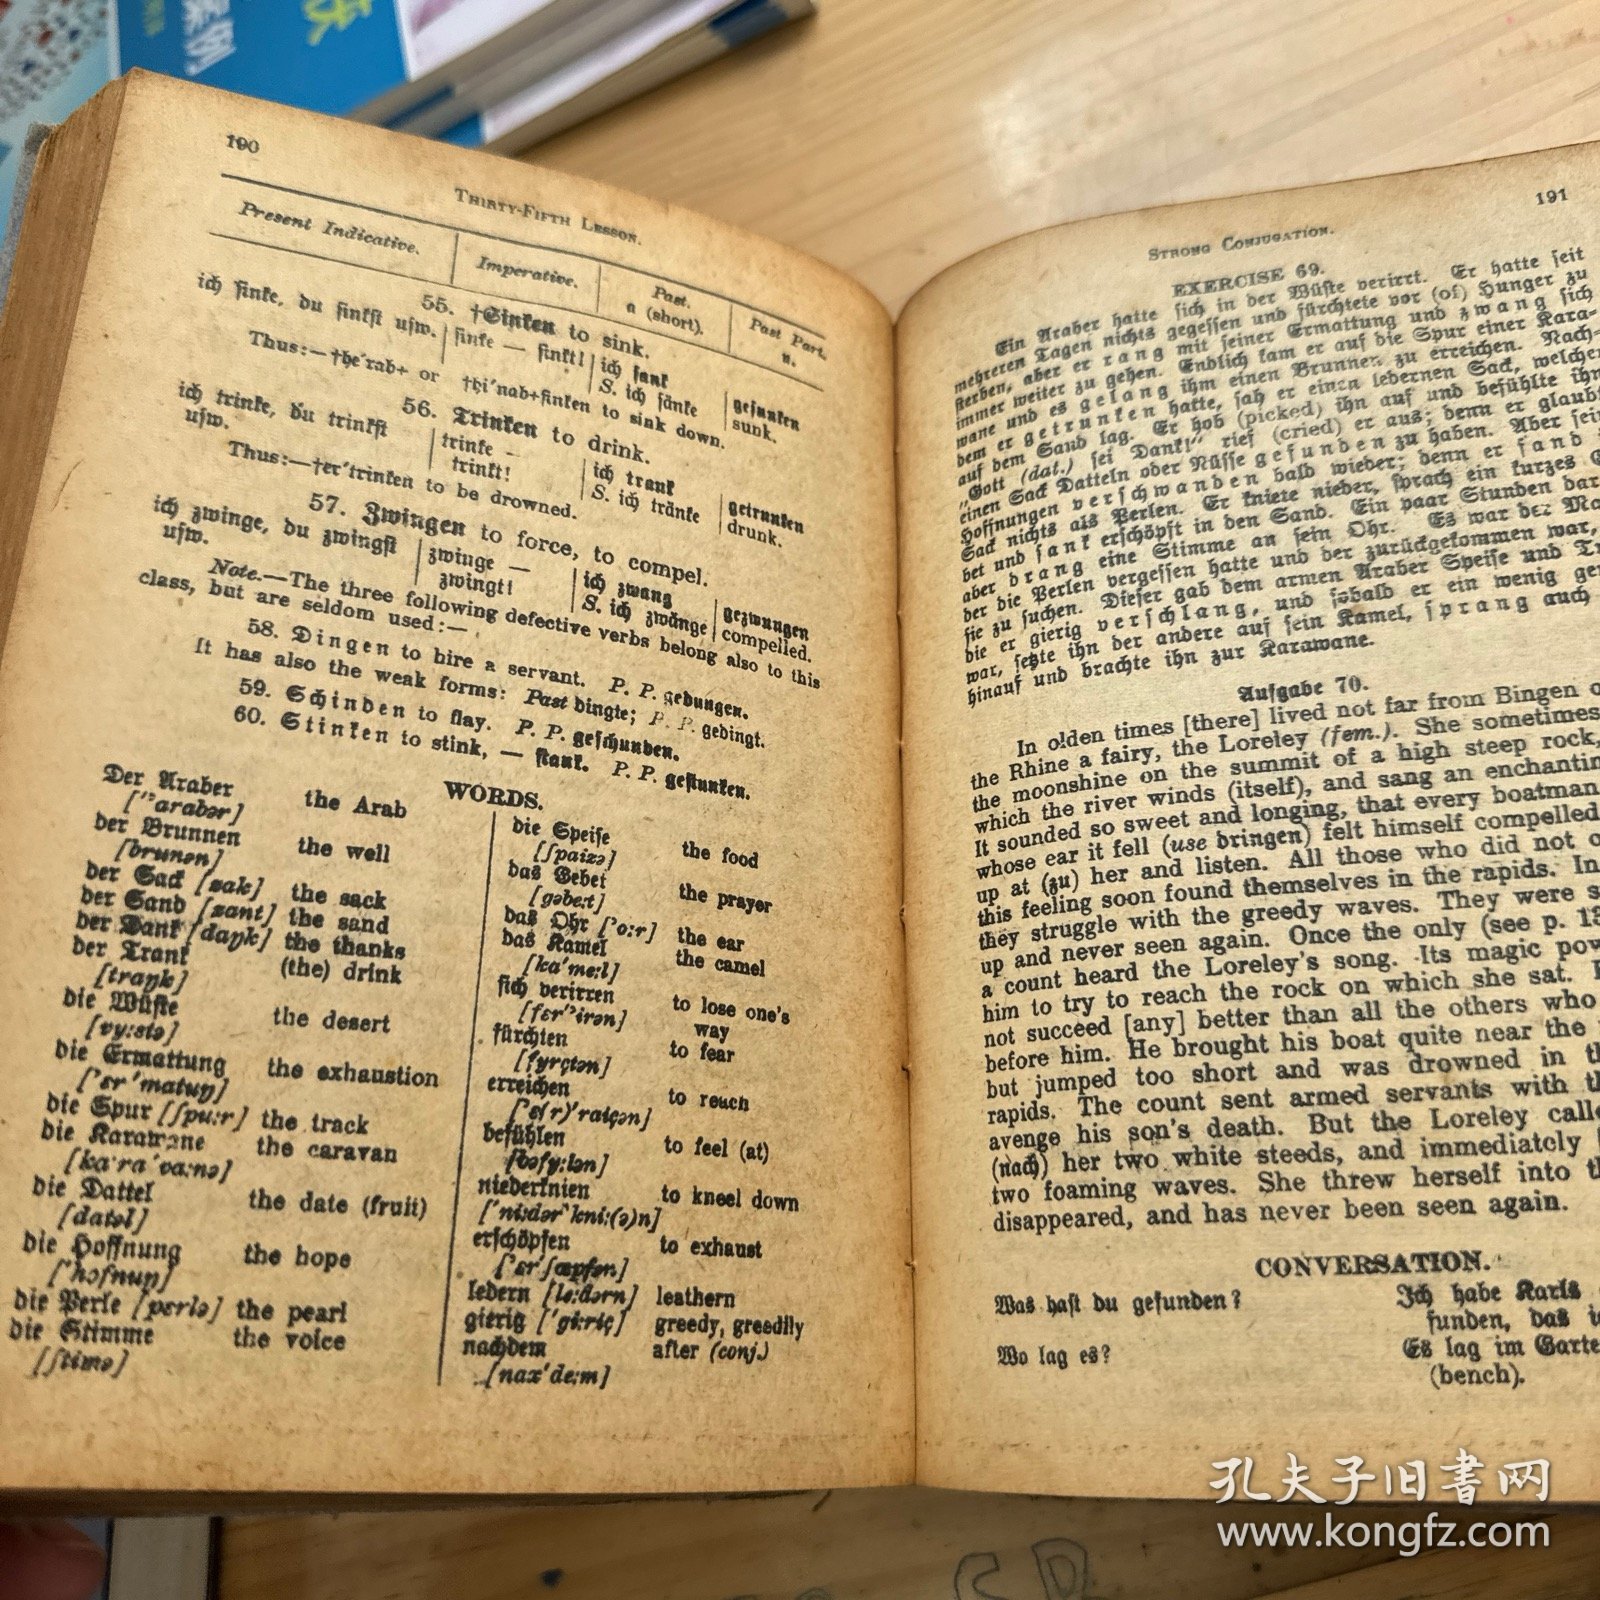 190
THIRTY-FIFTH LESSON.
Present Indicative. Imperative. Past. Past Part.
a (short). u.
55. †Sinken to sink.
ich sinke, du sinkst usw. sinke — sinkt! ich sank gesunken
S. ich sänke sunk.
Thus:—†he′rab+ or †hi′nab+sinken to sink down.
56. Trinken to drink.
ich trinke, du trinkst trinke – ich trank getrunken
usw. trinkt! S. ich tränke drunk.
Thus:—†er′trinken to be drowned.
57. Zwingen to force, to compel.
ich zwinge, du zwingst zwinge — ich zwang gezwungen
usw. zwingt! S. ich zwänge compelled.
Note.—The three following defective verbs belong also to this
class, but are seldom used:—
58. Dingen to hire a servant. P. P. gedungen.
It has also the weak forms: Past dingte; P. P. gedingt.
59. Schinden to flay. P. P. geschunden.
60. Stinken to stink, — stank. P. P. gestunken.
WORDS.
Der Araber the Arab
[′'arabər]
der Brunnen the well
[brunən]
der Sack [zak] the sack
der Sand [zant] the sand
der Dank [daŋk] the thanks
der Trank (the) drink
[traŋk]
die Wüste the desert
[vy:stə]
die Ermattung the exhaustion
['ɛr′matuŋ]
die Spur [ʃpu:r] the track
die Karawane the caravan
[ka·ra′va:nə]
die Dattel the date (fruit)
[datəl]
die Hoffnung the hope
['hɔfnuŋ]
die Perle [pɛrlə] the pearl
die Stimme the voice
[ʃtimə]
die Speise the food
[ʃpaizə]
das Gebet the prayer
[gəbe:t]
das Ohr ['o:r] the ear
das Kamel the camel
[ka′me:l]
sich verirren to lose one's
[fɛr′'irən] way
fürchten to fear
[fyrçtən]
erreichen to reach
['ɛ(r)′raiçən]
befühlen to feel (at)
[bəfy:lən]
niederknien to kneel down
[′ni:dər`kni:(ə)n]
erschöpfen to exhaust
['ɛr′ʃœpfən]
ledern [le:dərn] leathern
gierig [′gi:riç] greedy, greedily
nachdem after (conj.)
[nax′de:m]
191
STRONG CONJUGATION.
EXERCISE 69.
Ein Araber hatte sich in der Wüste verirrt. Er hatte seit
mehreren Tagen nichts gegessen und fürchtete vor (of) Hunger zu
sterben, aber er rang mit seiner Ermattung und zwang sich
immer weiter zu gehen. Endlich kam er auf die Spur einer Kara-
wane und es gelang ihm einen Brunnen zu erreichen. Nach-
dem er getrunken hatte, sah er einen ledernen Sack, welcher
auf dem Sand lag. Er hob (picked) ihn auf und befühlte ihn
„Gott (dat.) sei Dank!“ rief (cried) er aus; denn er glaubt
einen Sack Datteln oder Nüsse gefunden zu haben. Aber sein
Hoffnungen verschwanden bald wieder; denn er fand
Sack nichts als Perlen. Er kniete nieder, sprach ein kurzes
bet und sank erschöpft in den Sand. Ein paar Stunden
aber drang eine Stimme an sein Ohr. Es war der
der die Perlen vergessen hatte und der zurückgekommen war,
sie zu suchen. Dieser gab dem armen Araber Speise und
die er gierig verschlang, und sobald er ein wenig
war, setzte ihn der andere auf sein Kamel, sprang auch
hinauf und brachte ihn zur Karawane.
Aufgabe 70.
In olden times [there] lived not far from Bingen
the Rhine a fairy, the Loreley (fem.). She sometimes
the moonshine on the summit of a high steep rock,
which the river winds (itself), and sang an enchantin
It sounded so sweet and longing, that every boatman
whose ear it fell (use dringen) felt himself compelled
up at (zu) her and listen. All those who did not
this feeling soon found themselves in the rapids. In
they struggle with the greedy waves. They were
up and never seen again. Once the only (see p.
a count heard the Loreley's song. Its magic
him to try to reach the rock on which she sat.
not succeed [any] better than all the others who
before him. He brought his boat quite near the
but jumped too short and was drowned in
rapids. The count sent armed servants with
avenge his son's death. But the Loreley
(nach) her two white steeds, and immediately
two foaming waves. She threw herself into
disappeared, and has never been seen again.
CONVERSATION.
Was hast du gefunden? Ich habe Karls
funden, das
Wo lag es? Es lag im Garte
(bench).
孔夫子旧书网
www.kongfz.com